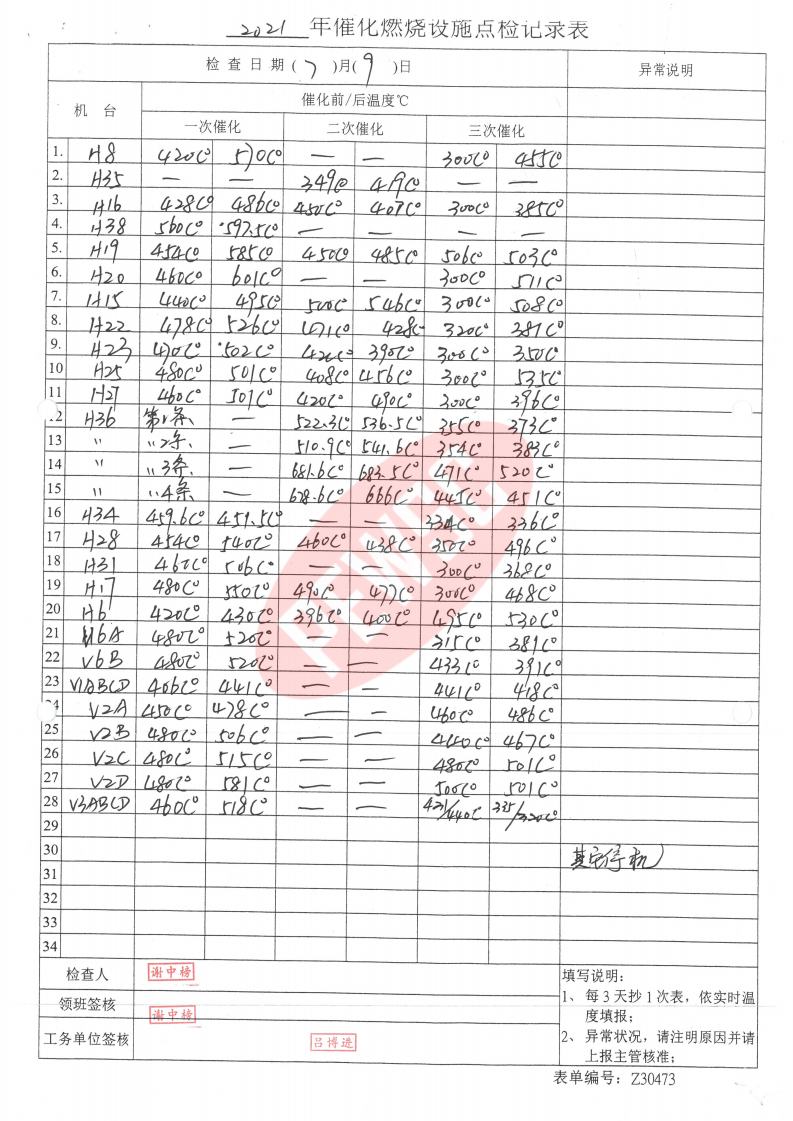 2021 年催化燃烧设施点检记录表
检查日期(7)月(9)日 异常说明
机 台 催化前/后温度℃
一次催化 二次催化 三次催化
1. H8 420C° 570C° — — 300C° 455C°
2. H35 — — 349C° 419C° — —
3. H16 428C° 486C° 450C° 407C° 300C° 385C°
4. H38 560C° 597.5C° — — — —
5. H19 454C° 585C° 450C° 485C° 506C° 503C°
6. H20 460C° 601C° — — 300C° 571C°
7. H15 440C° 495C° 500C° 546C° 300C° 508C°
8. H22 478C° 526C° 471C° 428C° 320C° 387C°
9. H23 470C° 502C° 420C° 390C° 300C° 350C°
10 H25 480C° 501C° 408C° 456C° 300C° 535C°
11 H27 460C° 501C° 420C° 490C° 300C° 396C°
12 H36 第1条 — 522.3C° 536.5C° 355C° 373C°
13 〃 〃2条 510.9C° 541.6C° 354C° 383C°
14 〃 〃3条 — 681.6C° 683.5C° 471C° 520C°
15 〃 〃4条 — 678.6C° 666C° 445C° 451C°
16 H34 459.6C° 451.5C° — — 334C° 336C°
17 H28 454C° 540C° 460C° 438C° 350C° 496C°
18 H31 460C° 506C° — — 300C° 368C°
19 H17 480C° 550C° 490C° 477C° 300C° 468C°
20 H6 420C° 430C° 396C° 400C° 495C° 530C°
21 V6A 480C° 520C° — — 315C° 381C°
22 V6B 480C° 520C° — — 433C° 391C°
23 V1ABCD 406C° 441C° — — 441C° 418C°
24 V2A 450C° 478C° — — 460C° 486C°
25 V2B 480C° 506C° — — 440C° 467C°
26 V2C 480C° 515C° — — 480C° 501C°
27 V2D 480C° 581C° — — 500C° 501C°
28 V3ABCD 460C° 518C° — — 421/440C° 335/320C°
29
30 其它停机
31
32
33
34
检查人 谢中榜
领班签核 谢中榜
工务单位签核 吕博进
填写说明:
1、每3天抄1次表，依实时温
度填报;
2、异常状况，请注明原因并请
上报主管核准;
表单编号: Z30473